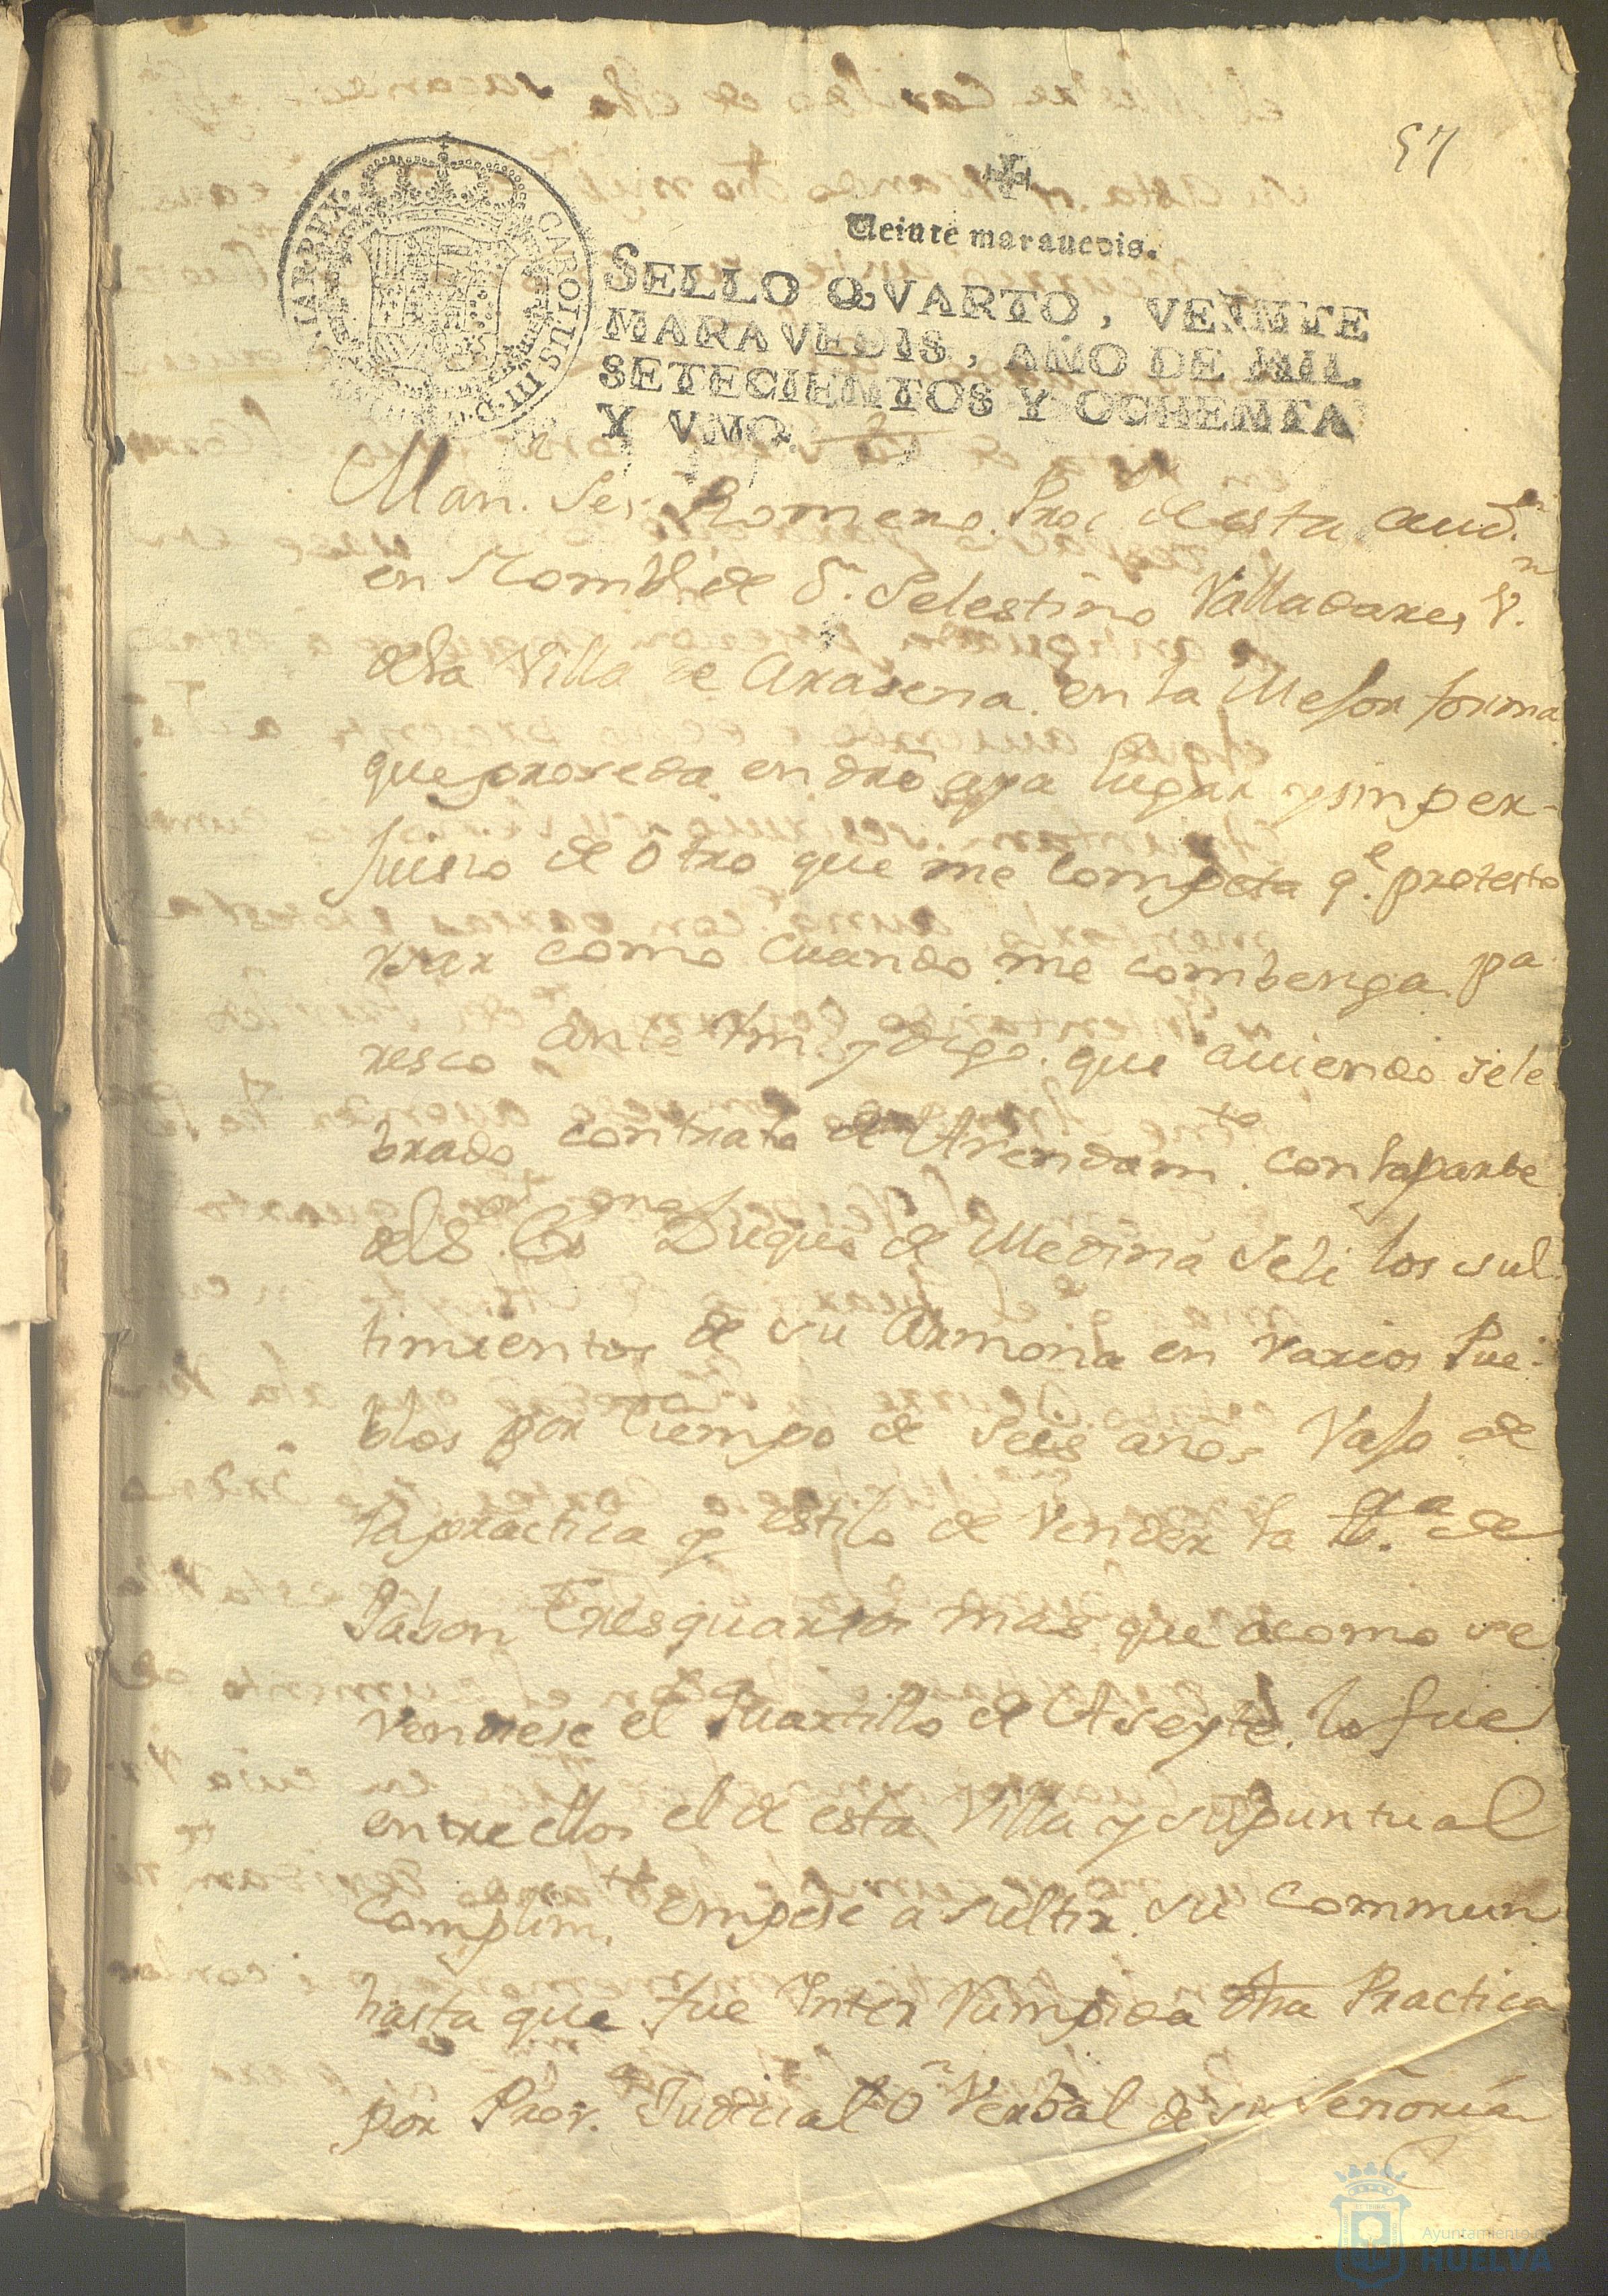 57
Veinte maravedis.
SELLO QVARTO, VEINTE
MARAVEDIS, AÑO DE MIL
SETECIENTOS Y OCHENTA
Y VNO.
CAROLUS III D.
Man. Romero Proc. de esta aud.ª
en Nombe de Dn. Selestino Valladares V.no
dela Villa de Arasena en la Mejor forma
que proseda en dro aya lugar y sin per-
juisio de otro que me competa q.e protesto
usar como cuando me combenga pa
resco ante Vm y digo que auiendo sele
brado contrato de Arrendam.to con la parte
del Duque de Medina Seli los sul
timientos de su Armona en Varios Pue-
blos por tiempo de seis años Vajo de
la practica y estilo de Vender la de
Jabon tres quartos mas que acomo se
Vendiese el quartillo de Aseyte. lo fue
entre ellos el de esta Villa y su puntual
Complim.to empese a sultir su commun
hasta que fue Inter Rumpida dha Practica
por Prov.n Judicial O Verbal de su señoria
Ayuntamiento de
HUELVA